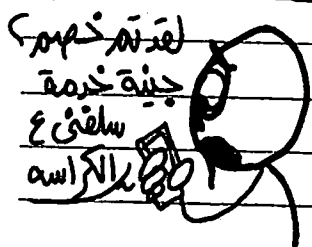 لقد تم خصم ٢
جنية خدمة
سلفنى ع
الكراسه